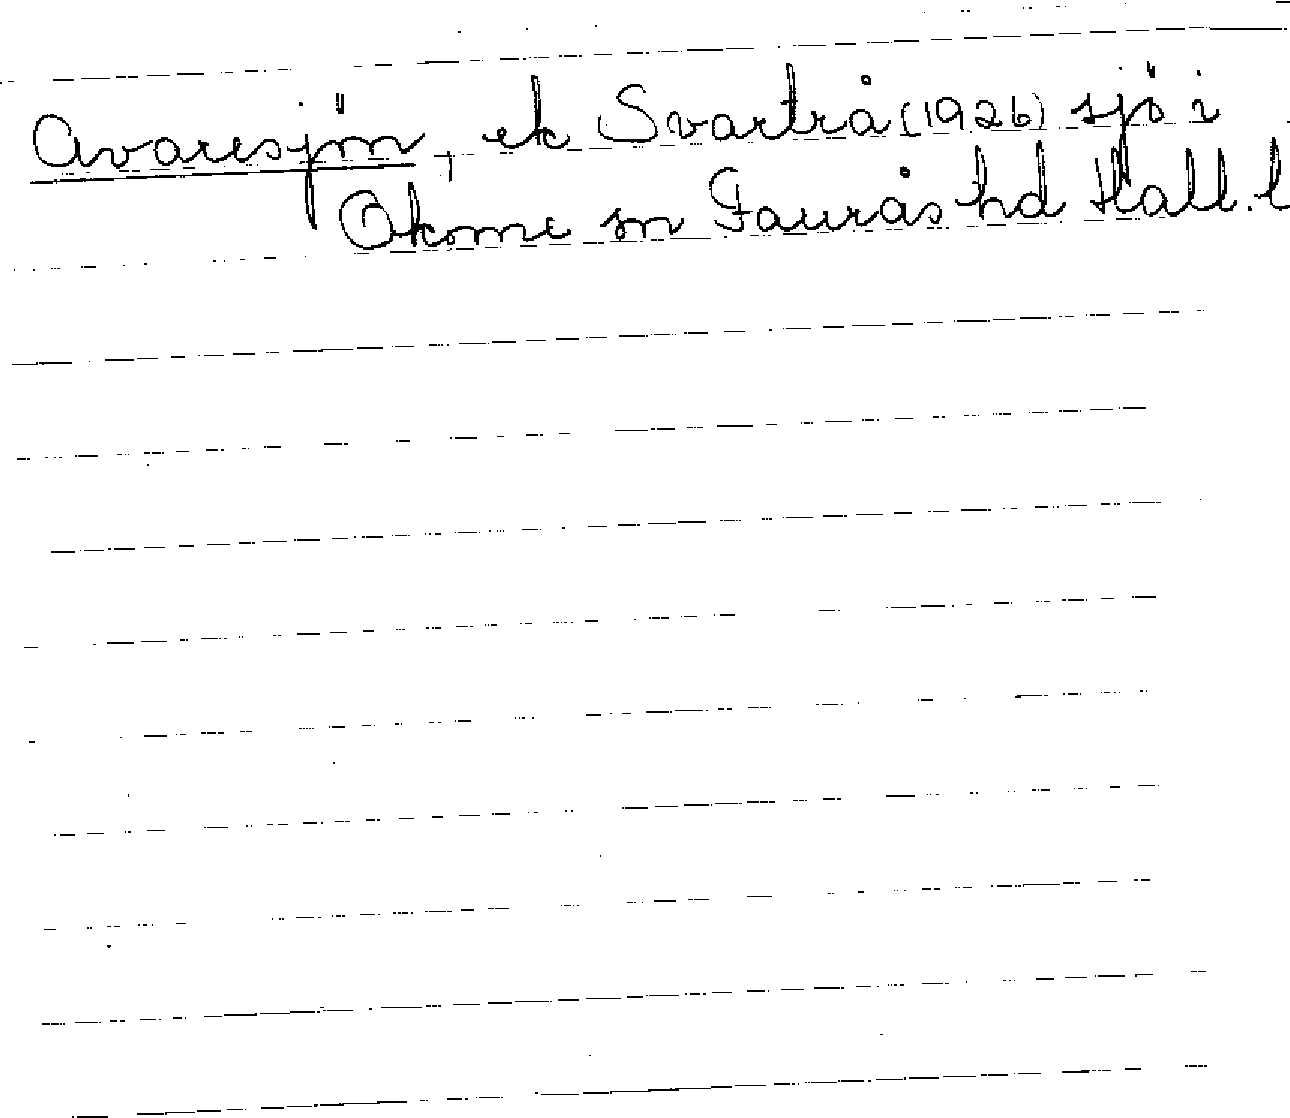 Avaresjön, ek Svartrå (1926) sjö i
Okome sn Faurås hd Hall. l